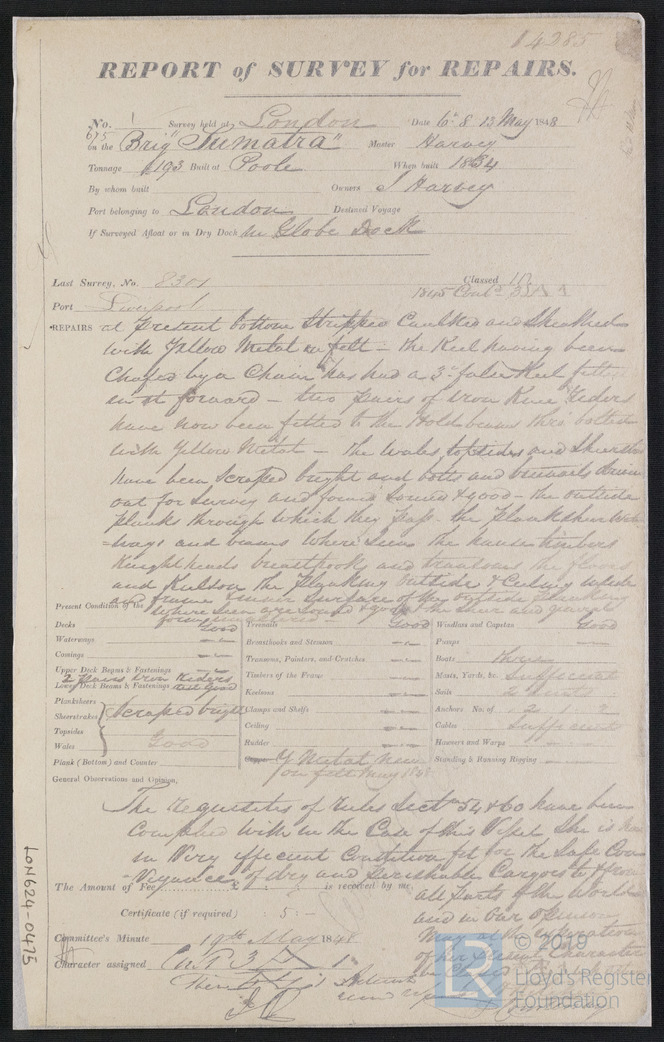 14285
REPORT of SURVEY for REPAIRS.
No. 1 Survey held at London Date 6th 8 13 May 1848
675
on the Brig "Sumatra" Master Harvey
Tonnage 193 Built at Poole When built 1834
By whom built Owners J Harvey
Port belonging to London Destined Voyage
If Surveyed Afloat or in Dry Dock in Globe Dock
Last Survey, No. 8301 Classed
1845 Cont
Port Liverpool
REPAIRS at present bottom stripped Caulked and Sheathed
with Yellow Metal on felt - the Keel having been
Chafed by a Chain has had a 3in false Keel fitted
forward - two pairs of iron Knee Riders
have now been fitted to the Hold beams thro' bolted
with Yellow Metal - the Wales, topsides and Sheerstks
have been Scraped bright and bolts and treenails driven
out for Survey and found Sound & good - the outside
planks through which they pass - the Plankshear Water
=ways and beams where seen the hawse timbers
Knightheads breasthooks and transoms the floors
and Keelson the planking outside & Ceiling inside
and frame inner surface of the outside planking
Present Condition of the
where seen are sound & good the shear and general
form
Decks Good Treenails Good Windlass and Capstan Good
Waterways Breasthooks and Stemson Pumps
Comings Transoms, Pointers, and Crutches Boats
Upper Deck Beams & Fastenings Timbers of the Frame Masts, Yards, &c. Sufficient
2 pairs iron Riders
Lower Deck Beams & Fastenings Keelsons Sails 2 Suits
Plansheers Clamps and Shelfs Anchors No. of 2
Sheerstrakes Scraped bright Ceiling Cables Sufficient
Topsides Rudder Hawsers and Warps
Wales Good Y Metal new Standing & Running Rigging
Plank (Bottom) and Counter on felt May 1848
General Observations and Opinion,
The requisites of Rules Sectn 54 & 60 have been
Complied with in the Case of this Vessel She is now
in Very efficient Condition fit for the Safe Con
=veyance of dry and perishable Cargoes to & from
The Amount of Fee £ : : is received by me,
all parts of the World
Certificate (if required) : 5 : -
and in our opinion
Committee's Minute 19th May 1848
May at the expiration
of her present Character
Character assigned
LON624-0475
© 2019
Lloyd's Register
Foundation
LR